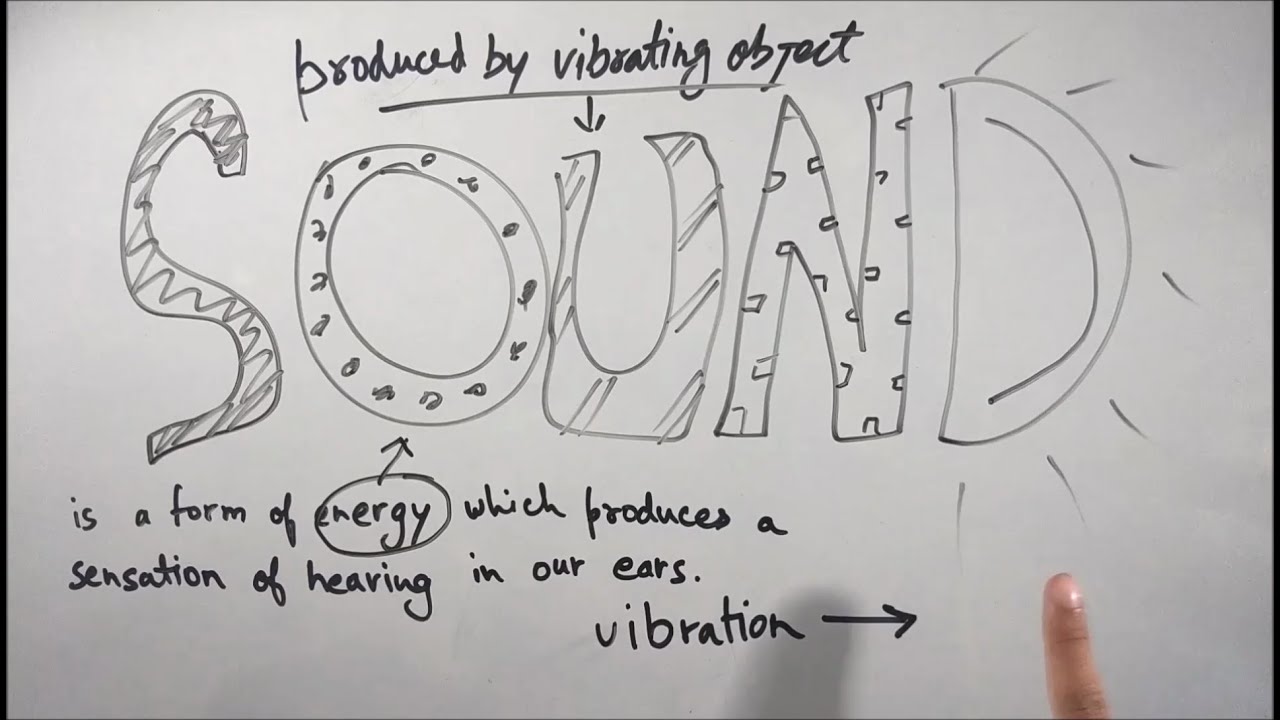 produced by vibrating object
SOUND
is a form of energy which produces a
sensation of hearing in our ears.
vibration →